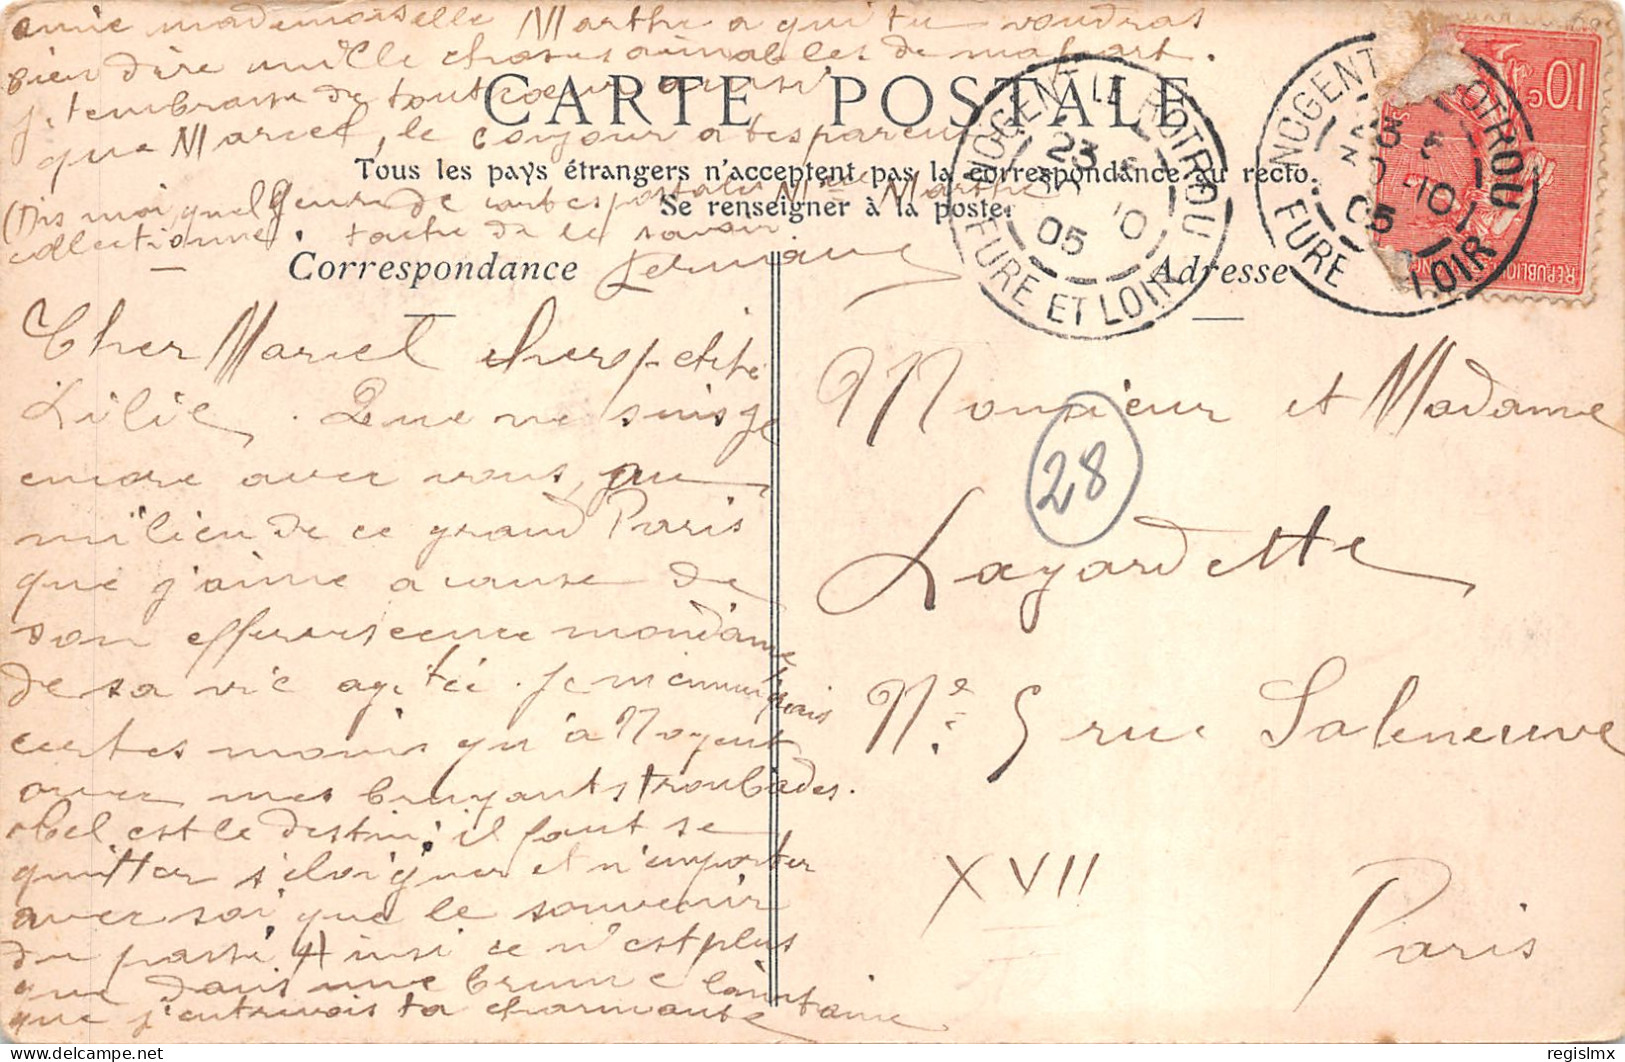 Cher Marcel chere petite
Lilie. Que ne suis je
encore avec vous, au
milieu de ce grand Paris
que j'aime a cause de
son effervescence mondaine
de sa vie agitée. Je m'ennuierais
certes moins qu'à Nogent
avec mes bruyants troubades.
est le destin; il faut se
quitter s'éloigner et n'emporter
avec soi que le souvenir
du passé Ainsi ce n'est plus
que dans une brume lointaine
que j'entrevois ta charmante
amie mademoiselle Marthe a qui tu voudras
bien dire mille choses aimables de ma part.
je t'embrasse de tout coeur ainsi
que Marcel, le bonjour a tes parents
(Dis moi quel genre de cartes postales Melle Marthe
collectionne. tache de le savoir
Germaine
CARTE POSTALE
Tous les pays étrangers n'acceptent pas la correspondance au recto.
Se renseigner à la poste.
Correspondance
Adresse
NOGENT LE ROTROU
23
10
05
EURE ET LOIR
NOGENT ROTROU
23
10
05
EURE LOIR
10 c
REPUBLIQUE
28
Monsieur et Madame
Lagardette
N° 5 rue Salneuve
XVII
Paris
regislmx